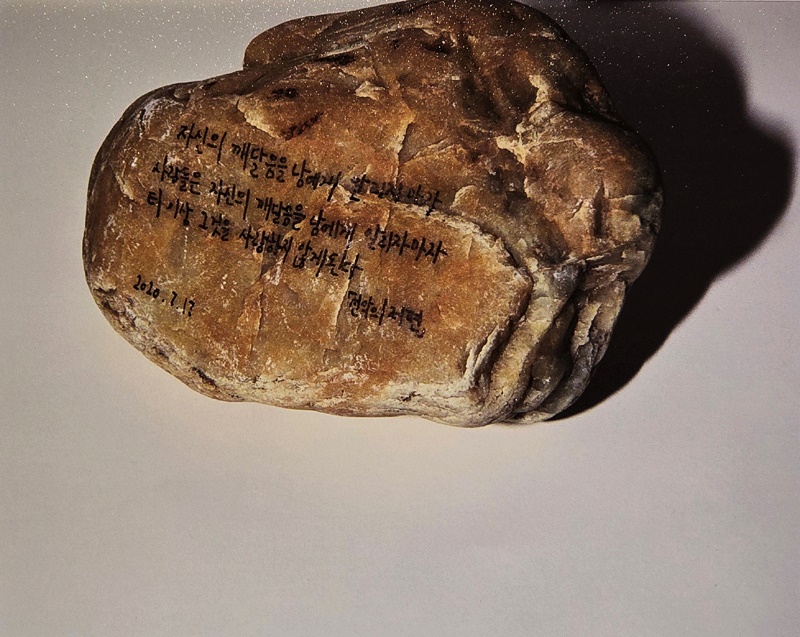 자신의 깨달음을 남에게 알리지마라
사람들은 자신의 깨달음을 남에게 알리자마자
더 이상 그것을 사랑하지 않게된다
2020.7.17
선악의 저편